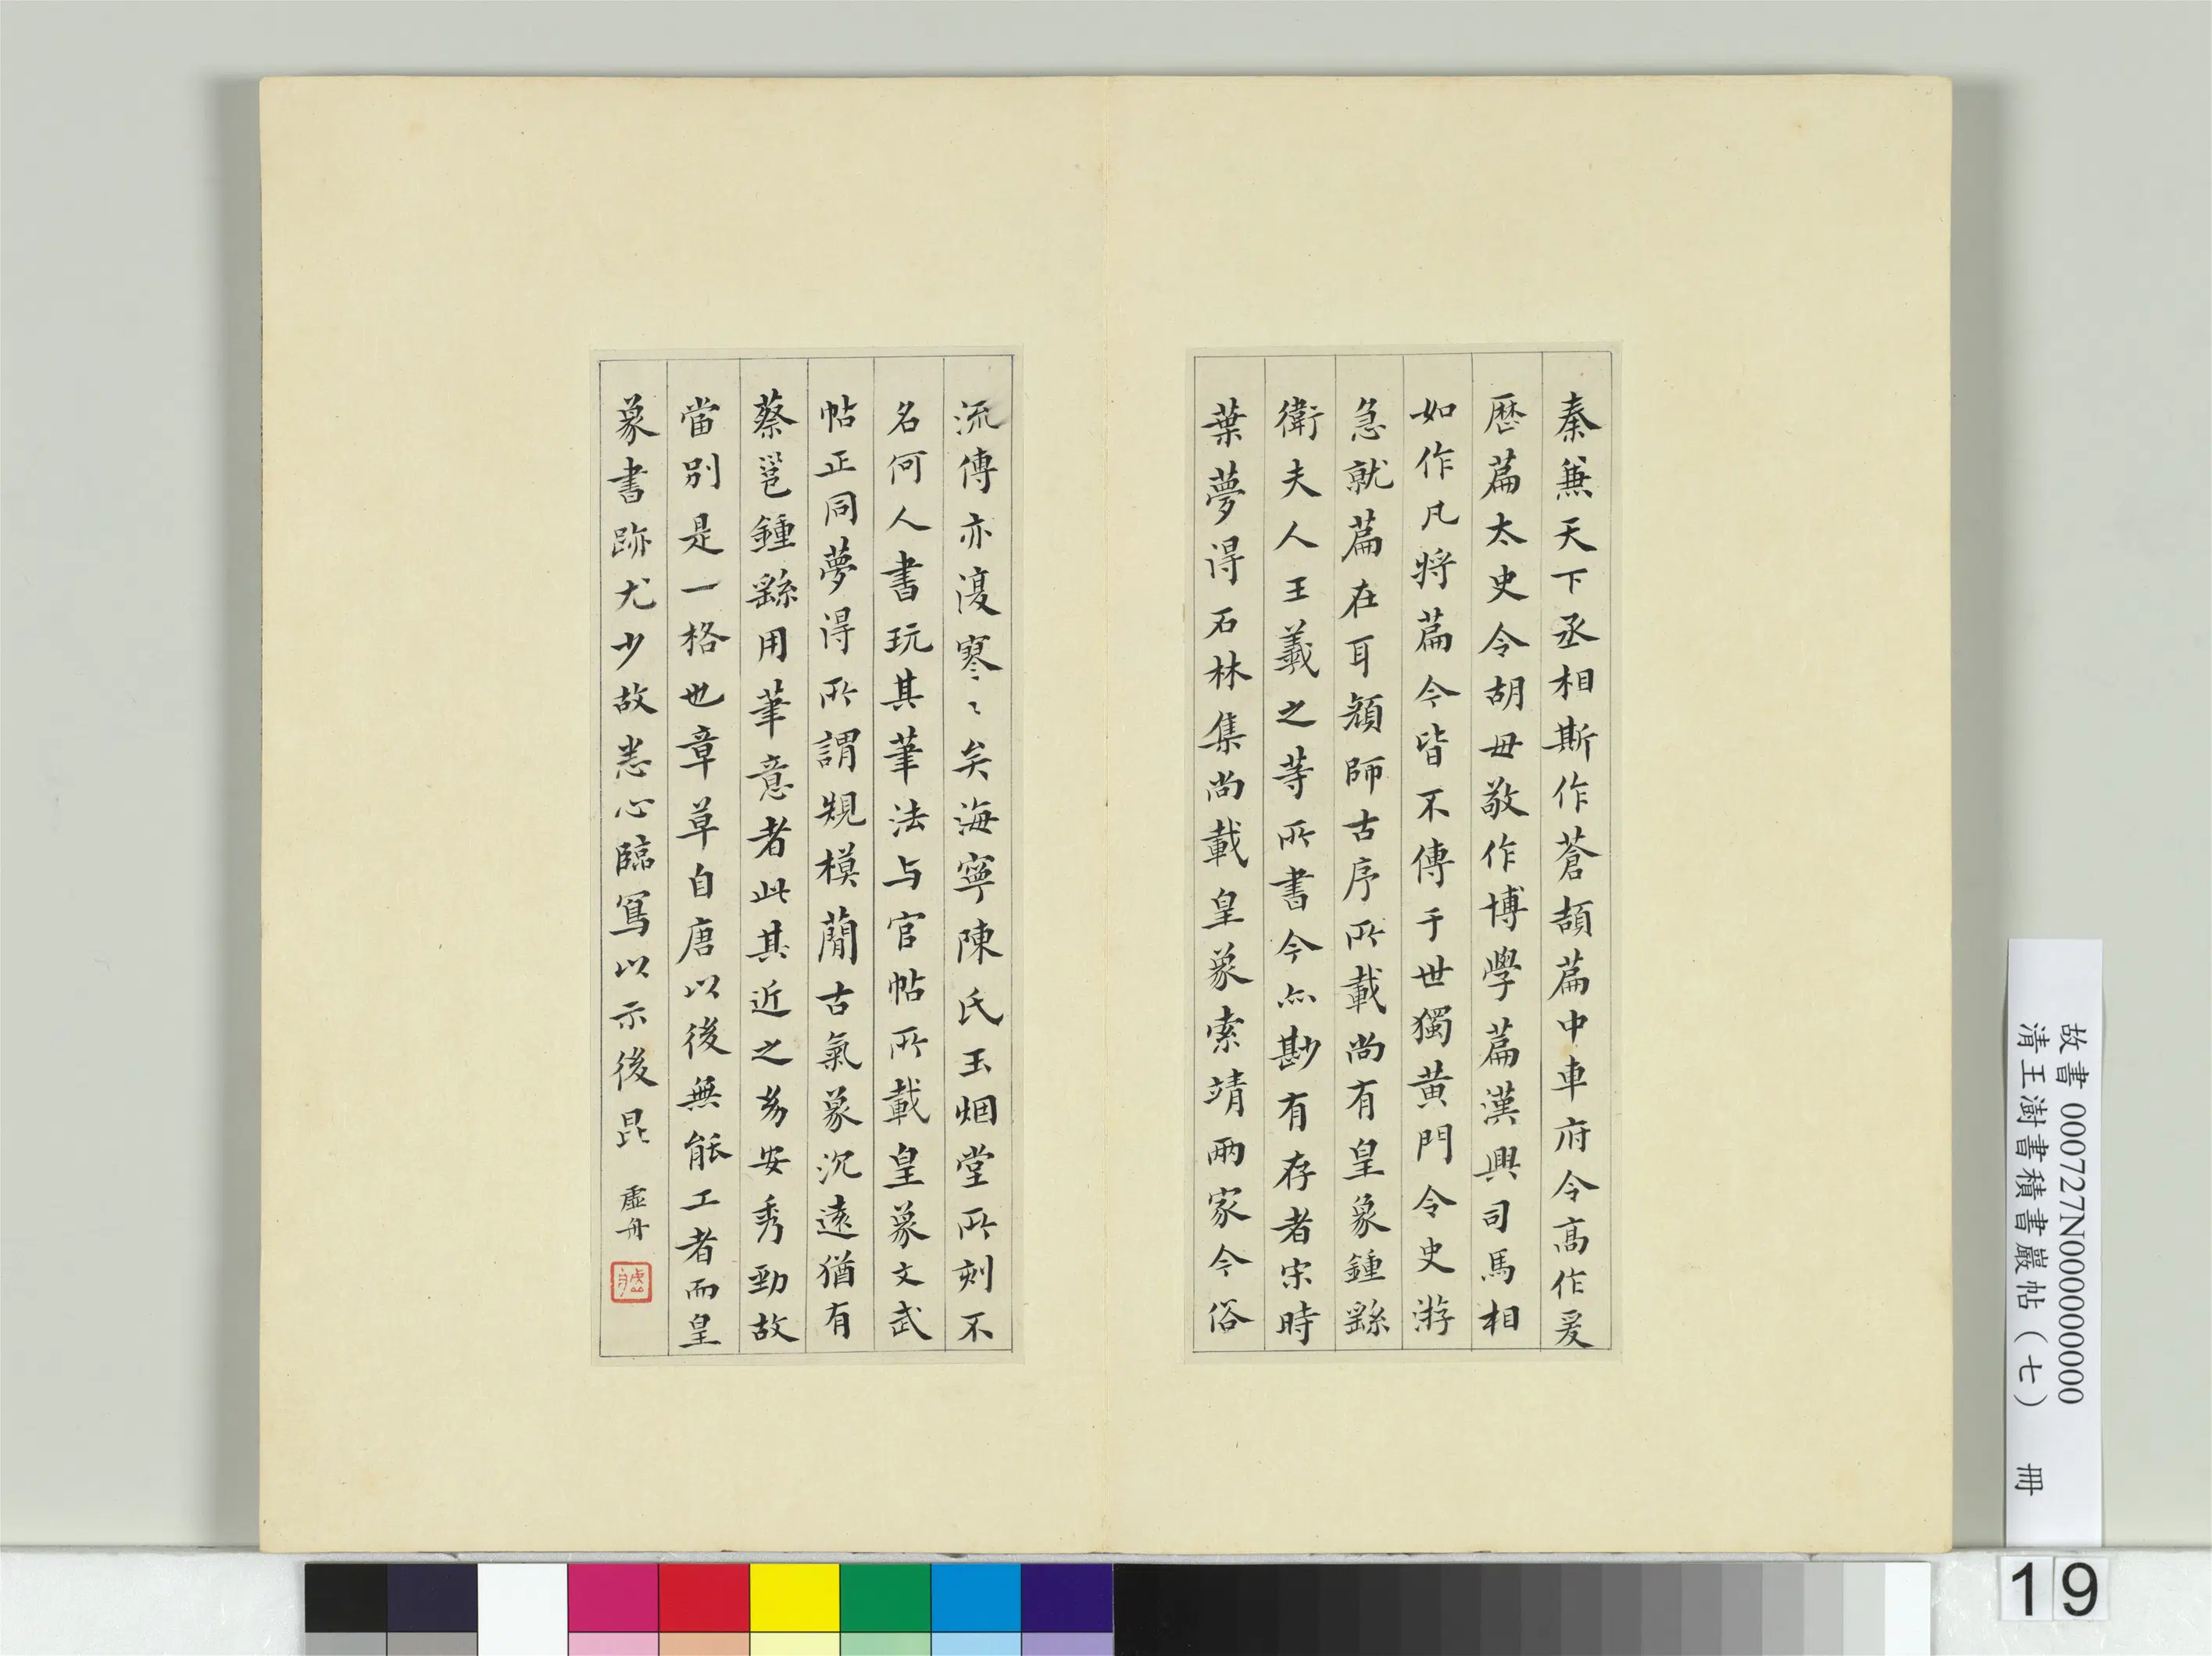 秦兼天下丞相斯作蒼頡篇中車府令高作爰
歷篇太史令胡毋敬作博學篇漢興司馬相
如作凡將篇今皆不傳于世獨黃門令史游
急就篇在耳顏師古序所載尚有皇象鍾繇
衛夫人王羲之等所書今亦尠有存者宋時
葉夢得石林集尚載皇象索靖兩家今俗
流傳亦復寥〻矣海寧陳氏玉烟堂所刻不
名何人書玩其筆法与官帖所載皇象文武
帖正同夢得所謂規模蕳古氣象沉遠猶有
蔡邕鍾繇用筆意者此其近之矣安秀勁故
當別是一格也章草自唐以後無能工者而皇
象書跡尤少故悉心臨寫以示後昆 虛舟
虛舟
故書 000727N000000000
清王澍書積書巖帖（七） 冊
19